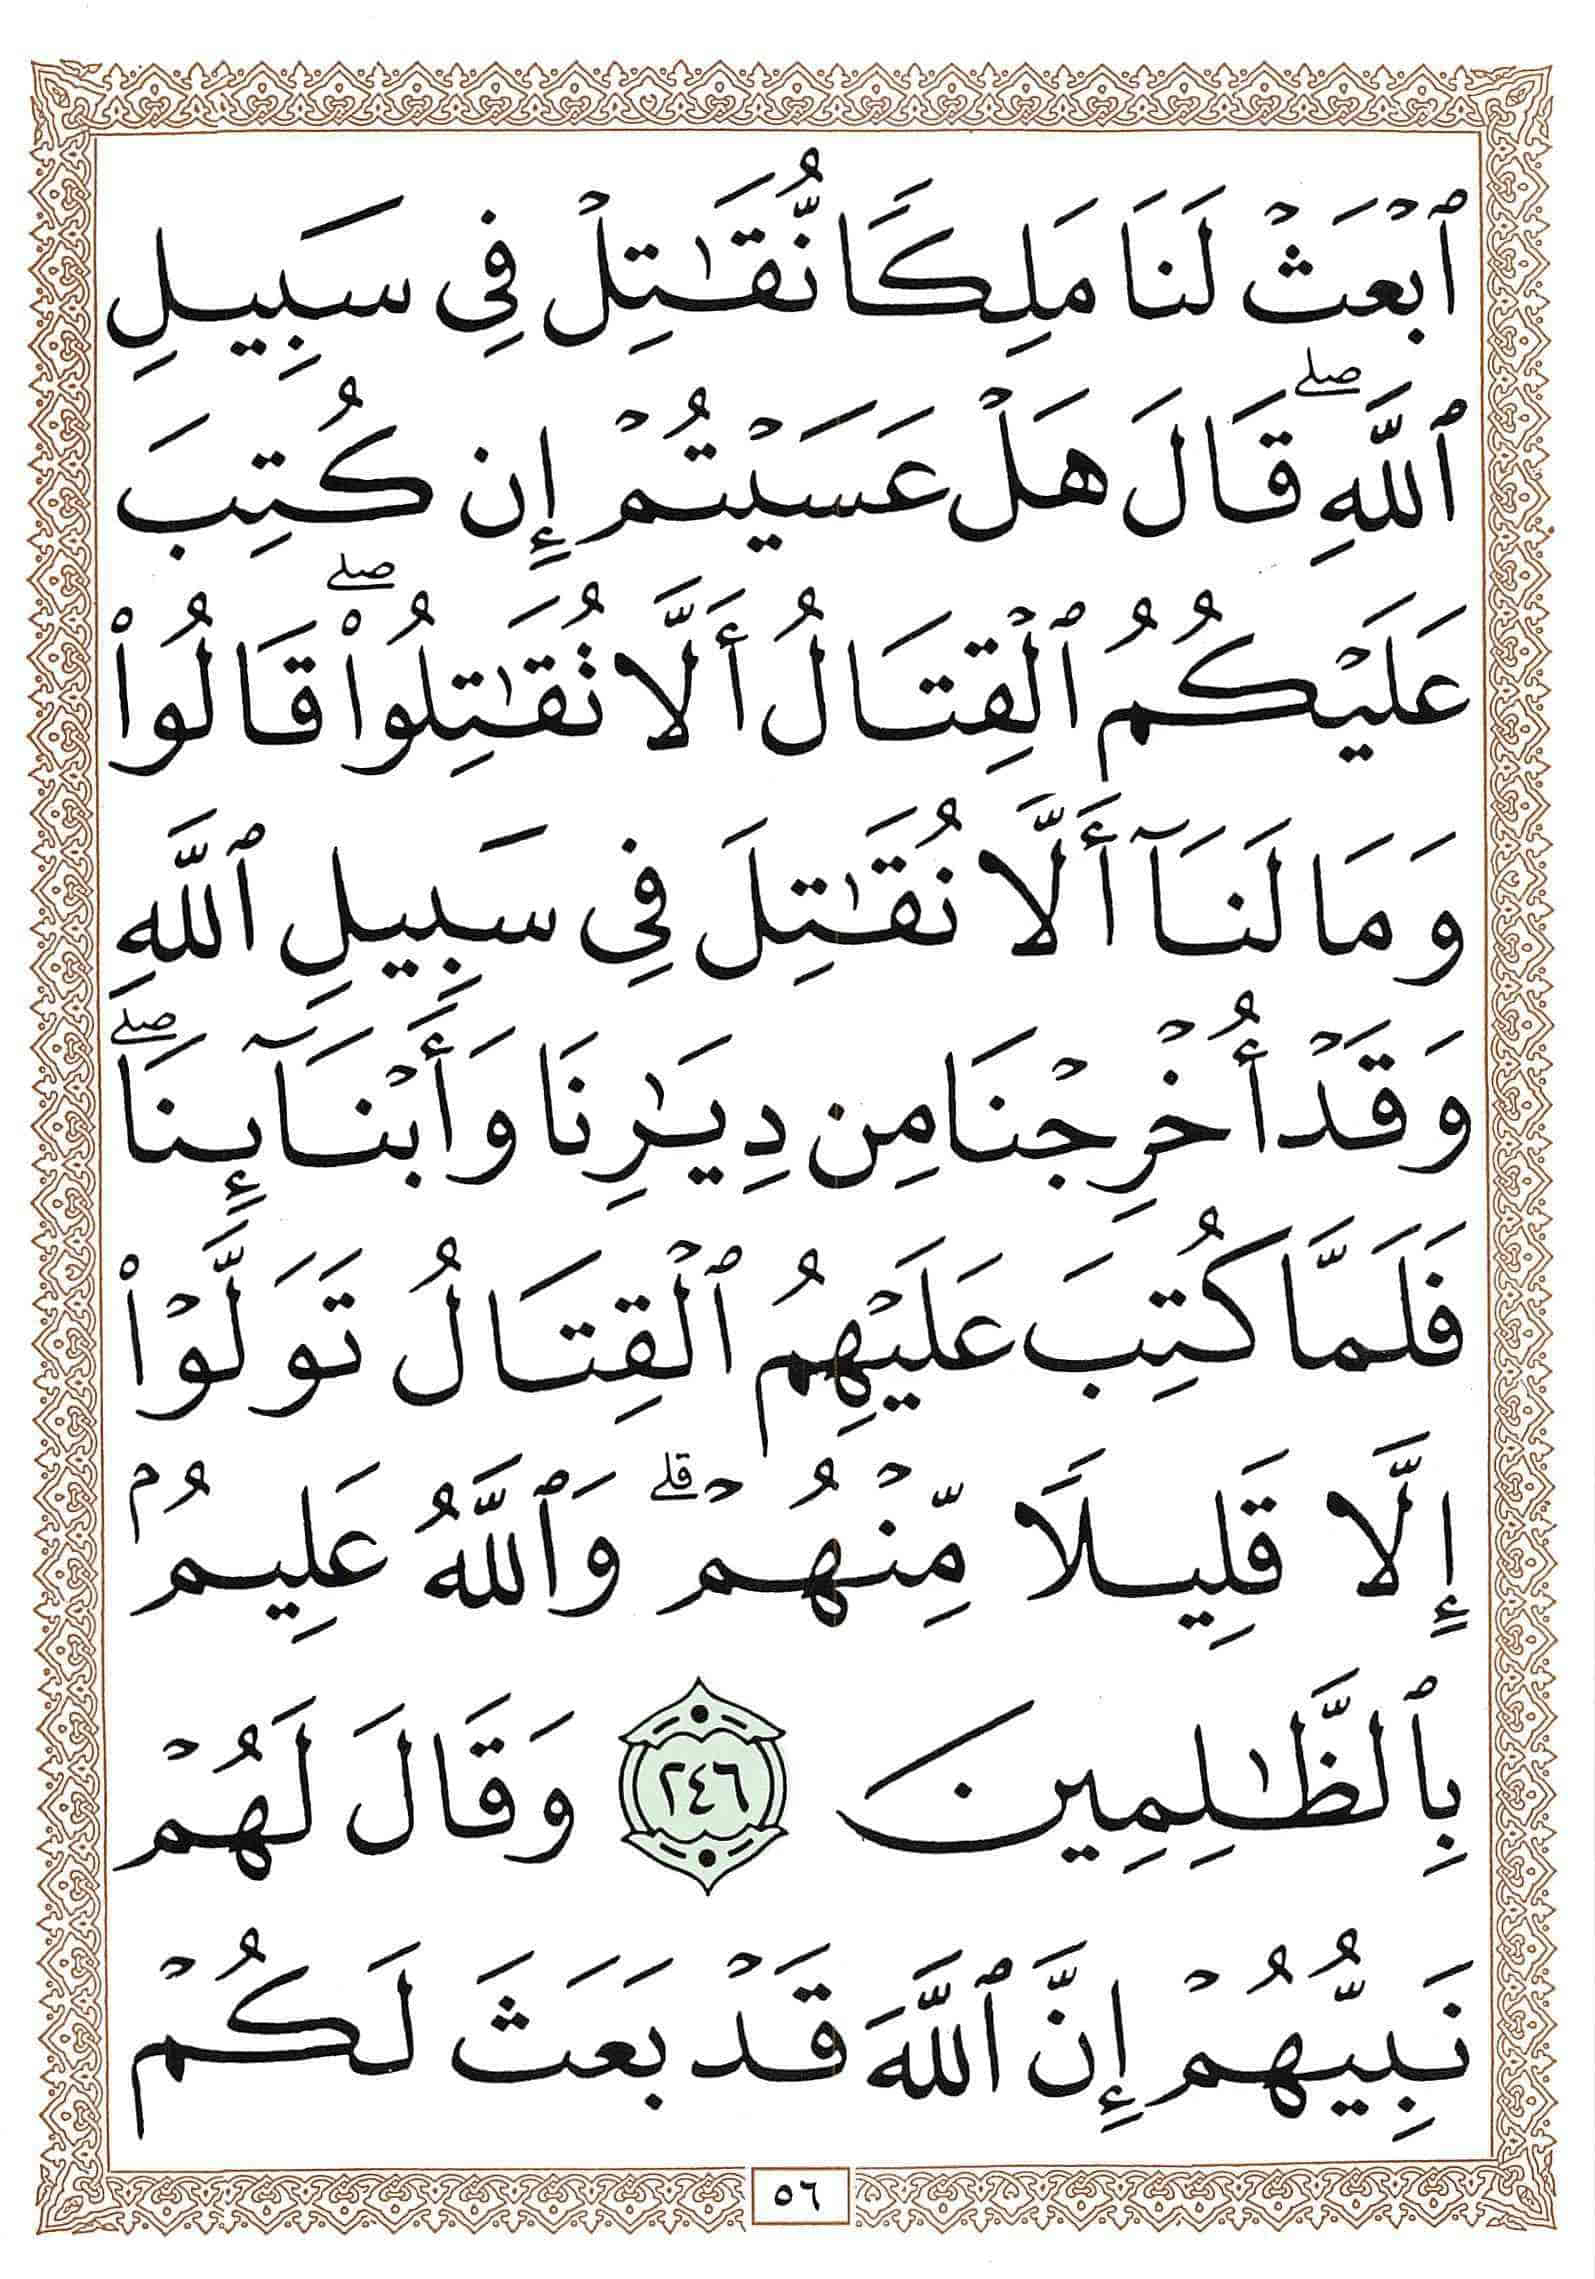 ٱبْعَثْ لَنَا مَلِكًا نُّقَـٰتِلْ فِى سَبِيلِ
ٱللَّهِ ۖ قَالَ هَلْ عَسَيْتُمْ إِن كُتِبَ
عَلَيْكُمُ ٱلْقِتَالُ أَلَّا تُقَـٰتِلُوا۟ ۖ قَالُوا۟
وَمَا لَنَآ أَلَّا نُقَـٰتِلَ فِى سَبِيلِ ٱللَّهِ
وَقَدْ أُخْرِجْنَا مِن دِيَـٰرِنَا وَأَبْنَآئِنَا ۖ
فَلَمَّا كُتِبَ عَلَيْهِمُ ٱلْقِتَالُ تَوَلَّوْا۟
إِلَّا قَلِيلًا مِّنْهُمْ ۗ وَٱللَّهُ عَلِيمٌۢ
بِٱلظَّـٰلِمِينَ ٢٤٦ وَقَالَ لَهُمْ
نَبِيُّهُمْ إِنَّ ٱللَّهَ قَدْ بَعَثَ لَكُمْ
٥٦